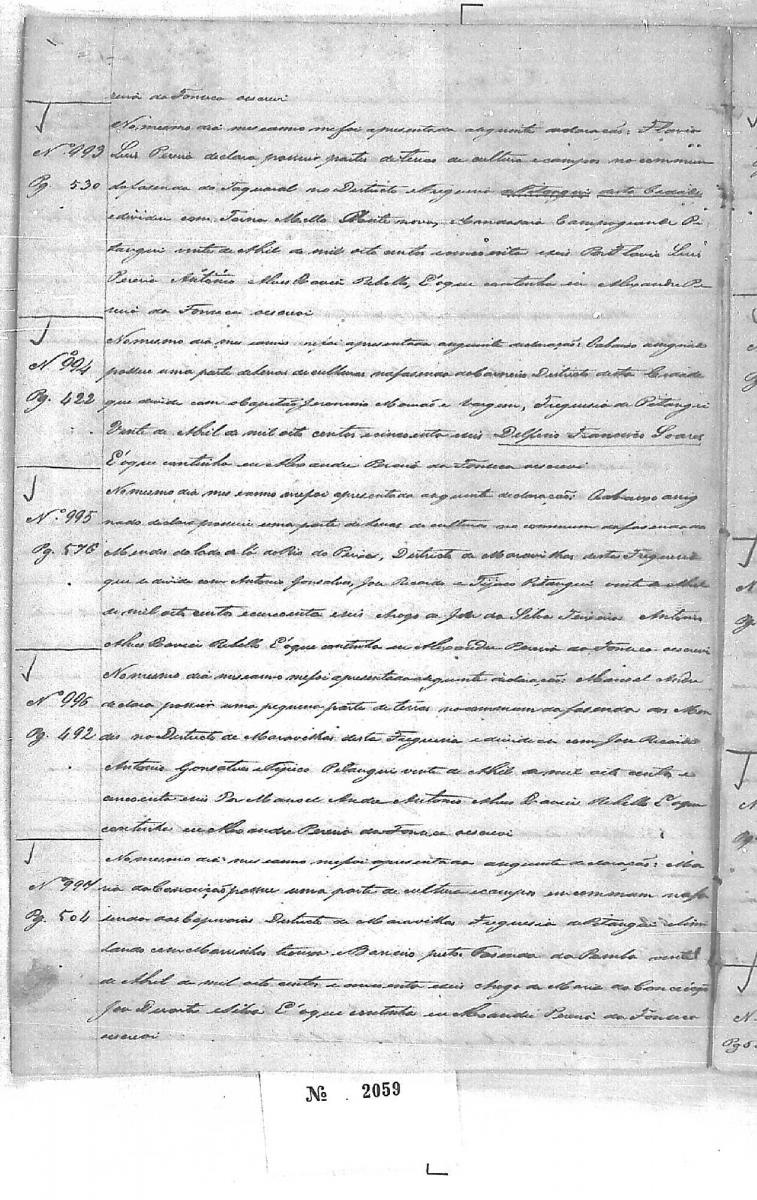 reira da Fonseca escrevi
No mesmo dia mes e anno me foi apresentada a seguinte declaração: Flavio
Nº 993
Luis Pereira declara possuir partes de terras de cultura e campos no commum
Pg. 530
da fasenda do Taquaral no Districto e Freguesia Pitangui desta Cidade
e divide com Mello Matte novo, Campo grande Pi-
tangui vinte de Abril de mil oito centos e cincoenta e seis Por Flavio Luis
Pereira Antonio Alves Rabello, E o que continha eu Alexandre Pe-
reira da Fonseca escrevi
No mesmo dia mes e anno me foi apresentada a seguinte declaração: O abaixo assignado
Nº 994
possue uma parte de terras de culturas na fasenda do Carneiro Districto desta Cidade
Pg. 422
que divide com Capitão Jeronimo e Vargem, Freguesia de Pitangui
Vinte de Abril de mil oito centos e cincoenta e seis Delfino Francisco Soares
E o que continha eu Alexandre Pereira da Fonseca escrevi
No mesmo dia mes e anno me foi apresentada a seguinte declaração: O abaixo assig
Nº 995
nado declara possuir uma parte de terras de culturas no commum da fasenda dos
Pg. 576
Mendes do lado de lá do Rio do Peixe, Districto de Maravilhas desta Freguesia
que se divide com Antonio Gonsalves, Jose Ricardo e Tijuco Pitangui vinte de Abril
de mil oito centos e cincoenta e seis A rogo de João da Silva Teixeira Antonio
Alves Rabello E o que continha eu Alexandre Pereira da Fonseca escrevi
No mesmo dia mes e anno me foi apresentada a seguinte declaração: Manoel Andre
Nº 996
declara possuir uma pequena parte de terras no commum da fasenda dos Men
Pg. 492
des no Districto de Maravilhas desta Freguesia e divide com Jose Ricardo
Antonio Gonsalves e Tijuco Pitangui vinte de Abril de mil oito centos e
cincoenta e seis Por Manoel Andre Antonio Alves Rabello E o que
continha eu Alexandre Pereira da Fonseca escrevi
No mesmo dia mes e anno me foi apresentada a seguinte declaração: Ma
Nº 997
ria da Conceição possue uma parte de cultura e campos em commum na fa
Pg. 504
senda das Capivaras Districto de Maravilhas Freguesia de Pitangui
com Fasenda do Pombo vinte
de Abril de mil oito centos e cincoenta e seis A rogo de Maria da Conceição
Jose Duarte e Silva E o que continha eu Alexandre Pereira da Fonseca
escrevi
Nº 2059